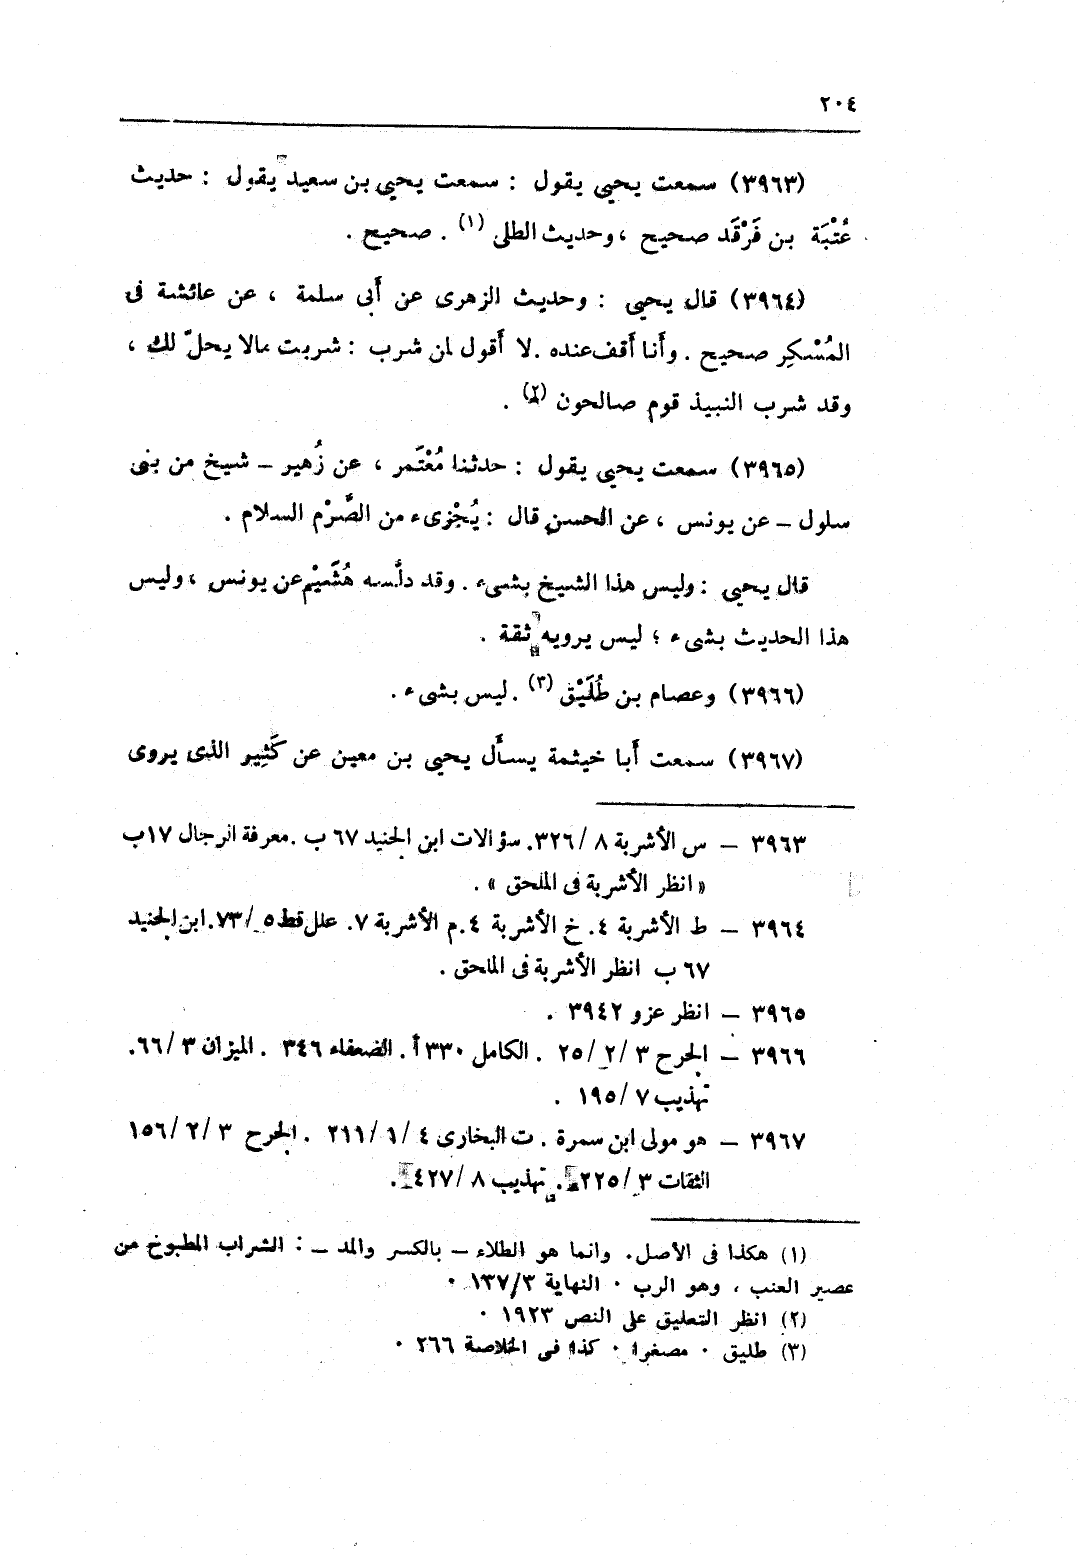 ٢٠٤
(٣٩٦٣) سمعت يحيى يقول : سمعت يحيى بن سعيد يقول : حديث
عُتْبَة بن فَرْقَد صحيح ، وحديث الطلى (١) . صحيح .
(٣٩٦٤) قال يحيى : وحديث الزهرى عن أَبى سلمة ، عن عائشة فى
المُسْكِر صحيح . وأَنا أَقف عنده . لا أَقول لمن شرب : شربت مالا يحلّ لك ،
وقد شرب النبيذ قوم صالحون (٢) .
(٣٩٦٥) سمعت يحيى يقول : حدثنا مُعْتَمر ، عن زُهير – شيخ من بنى
سلول – عن يونس ، عن الحسن قال : يُجْزىء من الصَّرْم السلام .
قال يحيى : وليس هذا الشيخ بشىء . وقد دلَّسه هُشَيْم عن يونس ، وليس
هذا الحديث بشىء ؛ ليس يرويه ثقة .
(٣٩٦٦) وعصام بن طُلَيْق (٣) . ليس بشىء .
(٣٩٦٧) سمعت أَبا خيثمة يسأَل يحيى بن معين عن كَثِير الذى يروى
٣٩٦٣ – س الأشربة ٨ /٣٢٦. سؤالات ابن الجنيد ٦٧ ب .معرفة الرجال ١٧ب
« انظر الأشربة فى الملحق » .
٣٩٦٤ – ط الأشربة ٤. خ الأشربة ٤.م الأشربة ٧. علل قط ٥ /٧٣.ابن الجنيد
٦٧ ب انظر الأشربة فى الملحق .
٣٩٦٥ – انظر عزو ٣٩٤٢ .
٣٩٦٦ – الجرح ٣ /٢ /٢٥ . الكامل ٣٣٠ أ . الضعفاء ٣٤٦ . الميزان ٣ /٦٦.
تهذيب ٧ /١٩٥ .
٣٩٦٧ – هو مولى ابن سمرة . ت البخارى ٤ /١ /٢١١ . الجرح ٣ /٢ /١٥٦
الثقات ٣ /٢٢٥ . تهذيب ٨ /٤٢٧ .
(١) هكذا فى الأصل. وانما هو الطلاء – بالكسر والمد – : الشراب المطبوخ من
عصير العنب ، وهو الرب . النهاية ١٣٧/٣ .
(٢) انظر التعليق على النص ١٩٢٣ .
(٣) طليق . مصغرا . كذا فى الخلاصة ٢٦٦ .